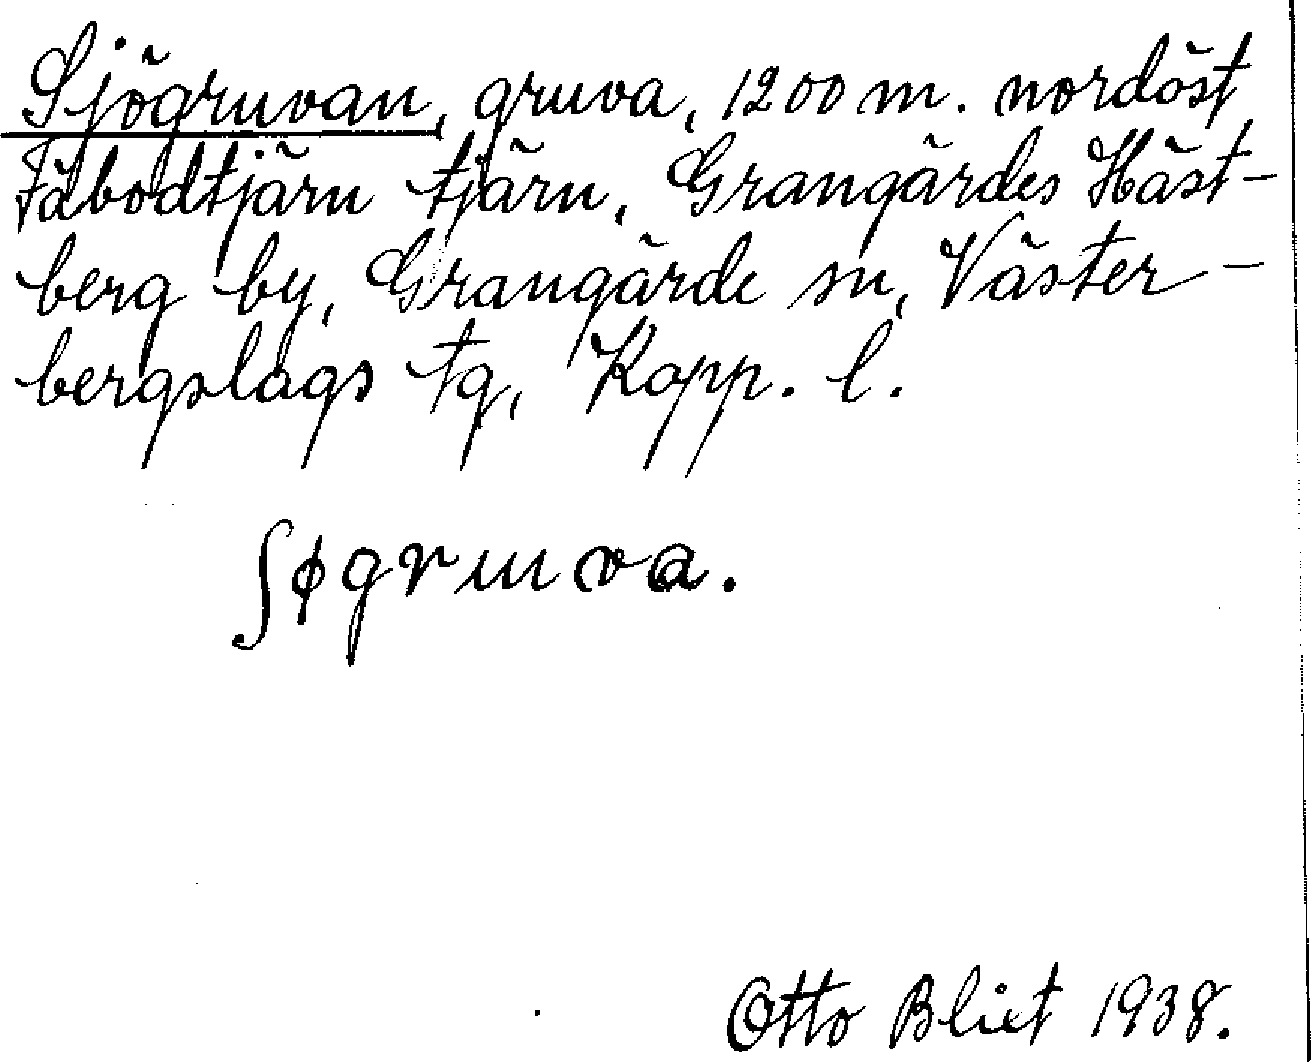 Sjögruvan, gruva, 1200 m. nordöst
Fäbodtjärn tjärn, Grangärdes Häst-
berg by, Grangärde sn, Väster-
bergslags tg, Kopp. l.
ʃøgruva.
Otto Blixt 1938.